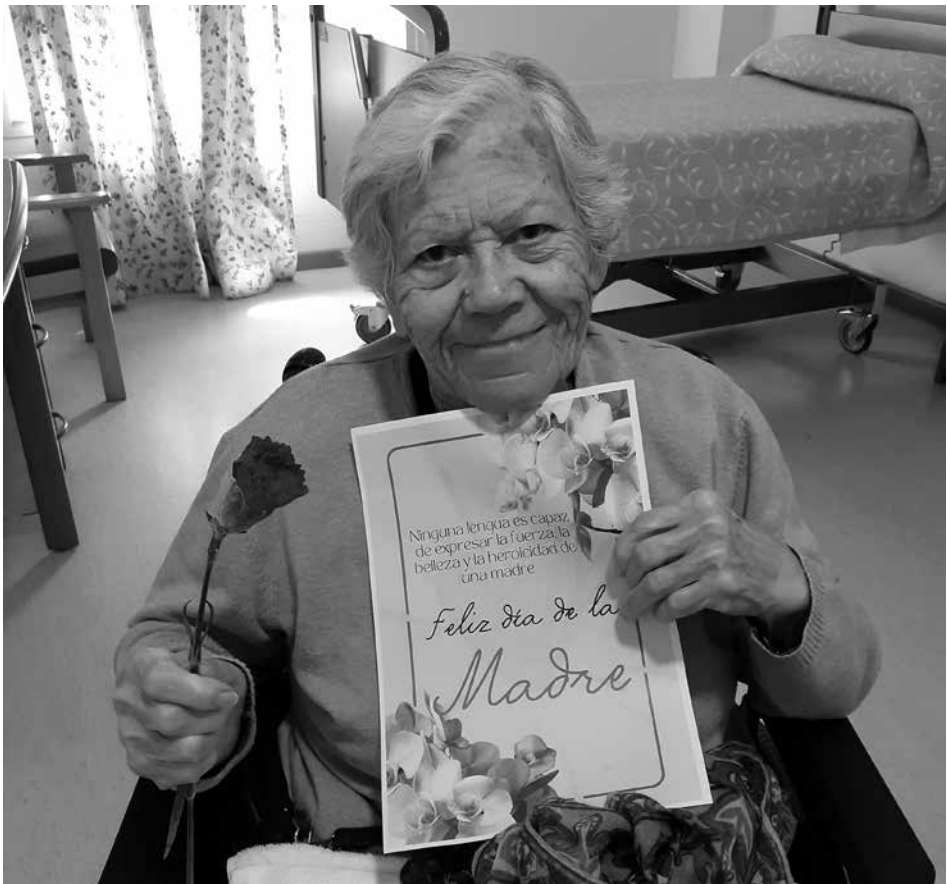 Ninguna lengua es capaz
de expresar la fuerza, la
belleza y la heroicidad de
una madre
Feliz día de la
Madre